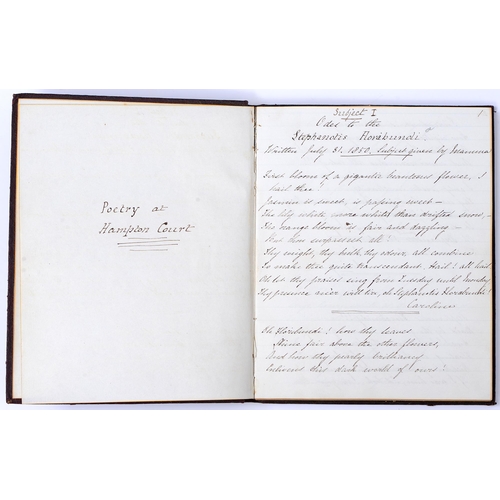 Poetry at
Hampton Court
Subject I
1
Odes to the
Stephanotis Floribundi
Written July 31. 1850. Subject given by Mamma
First bloom of a gigantic beauteous flower, I
hail thee!
Jasmin is sweet, is passing sweet —
The lily white more white than drifted snow, —
The mango bloom is fair and dazzling —
But thou surpassest all!
Thy weight, thy bulk, thy odour all combine
To make thee quite transcendant Hail! all hail
Oh let thy praises sing from Tuesday until Monday
Thy presence never will tire, oh Stephanotis Floribundi!
Caroline
Oh Floribundi! how thy leaves
Shine fair above the other flowers,
And how thy pearly brilliancy
Enlivens this dark world of ours!